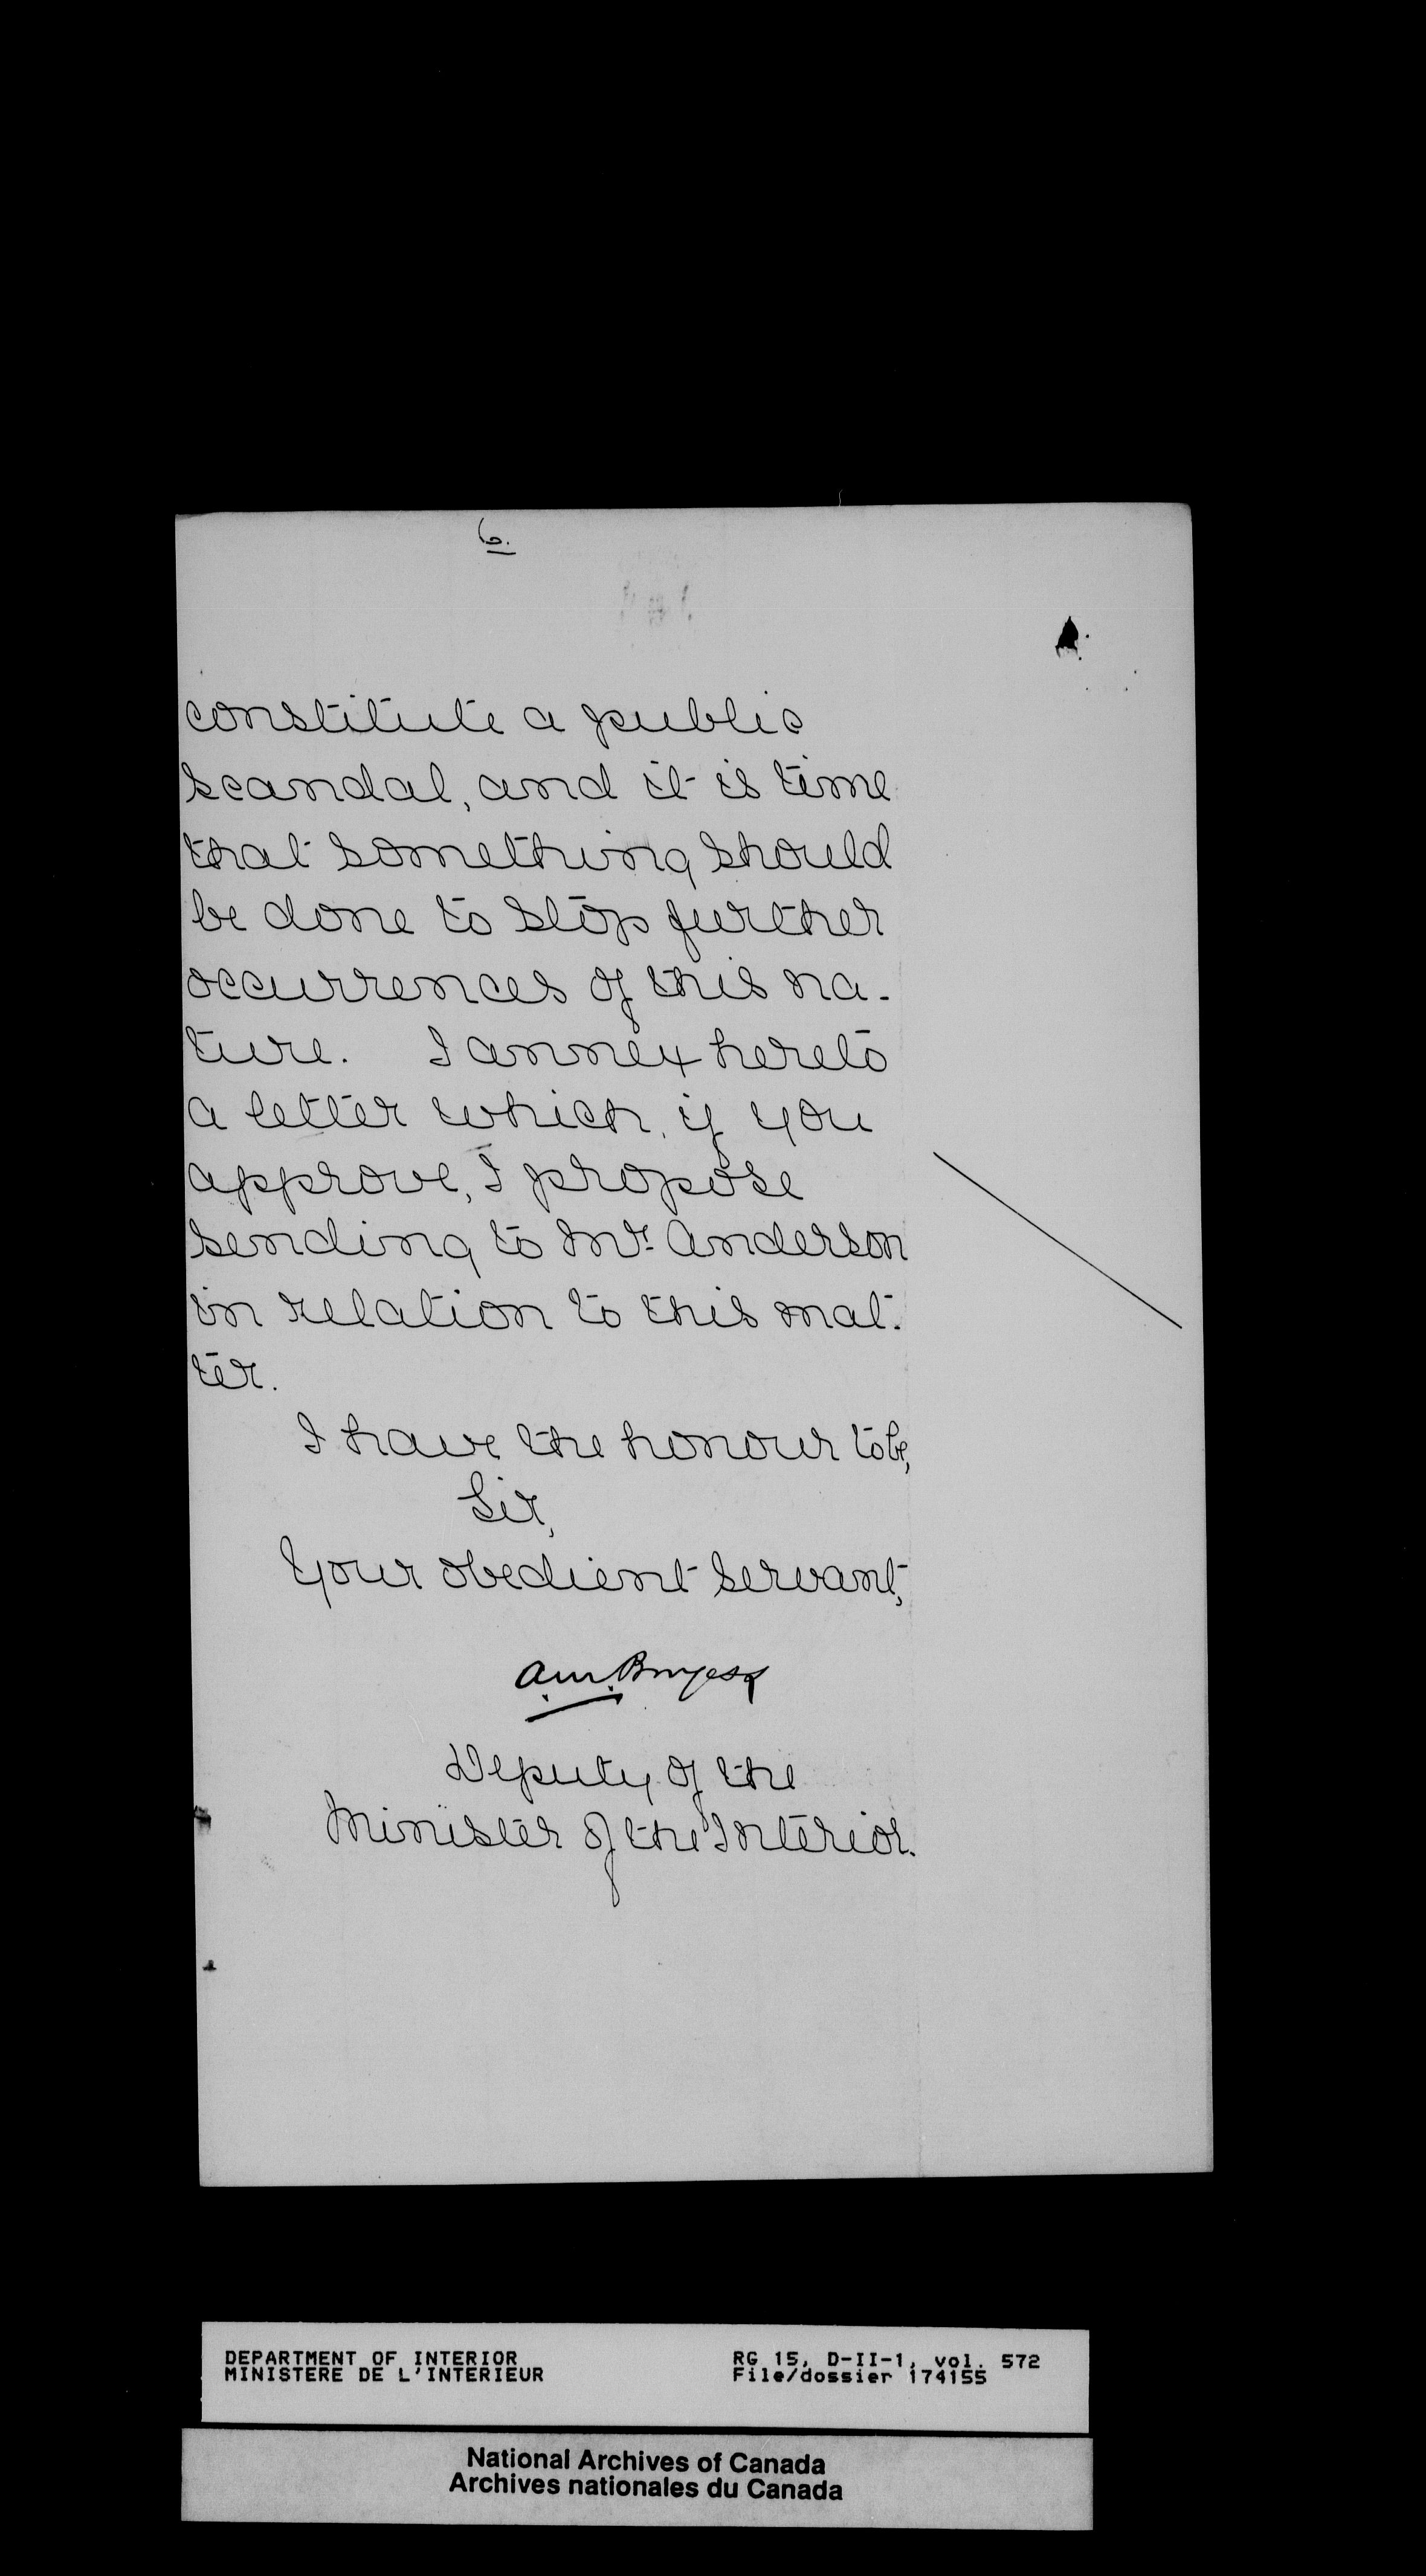 6.
constitute a public
scandal, and it is time
that something should
be done to stop further
occurrences of this na-
ture. I annex hereto
a letter which, if you
approve, I propose
sending to Mr. Anderson
in relation to this mat-
ter.
I have the honour to be,
Sir,
Your obedient servant,
A.M. Burgess
Deputy of the
Minister of the Interior.
DEPARTMENT OF INTERIOR
MINISTERE DE L'INTERIEUR
RG 15, D-II-1, vol. 572
File/dossier 174155
National Archives of Canada
Archives nationales du Canada